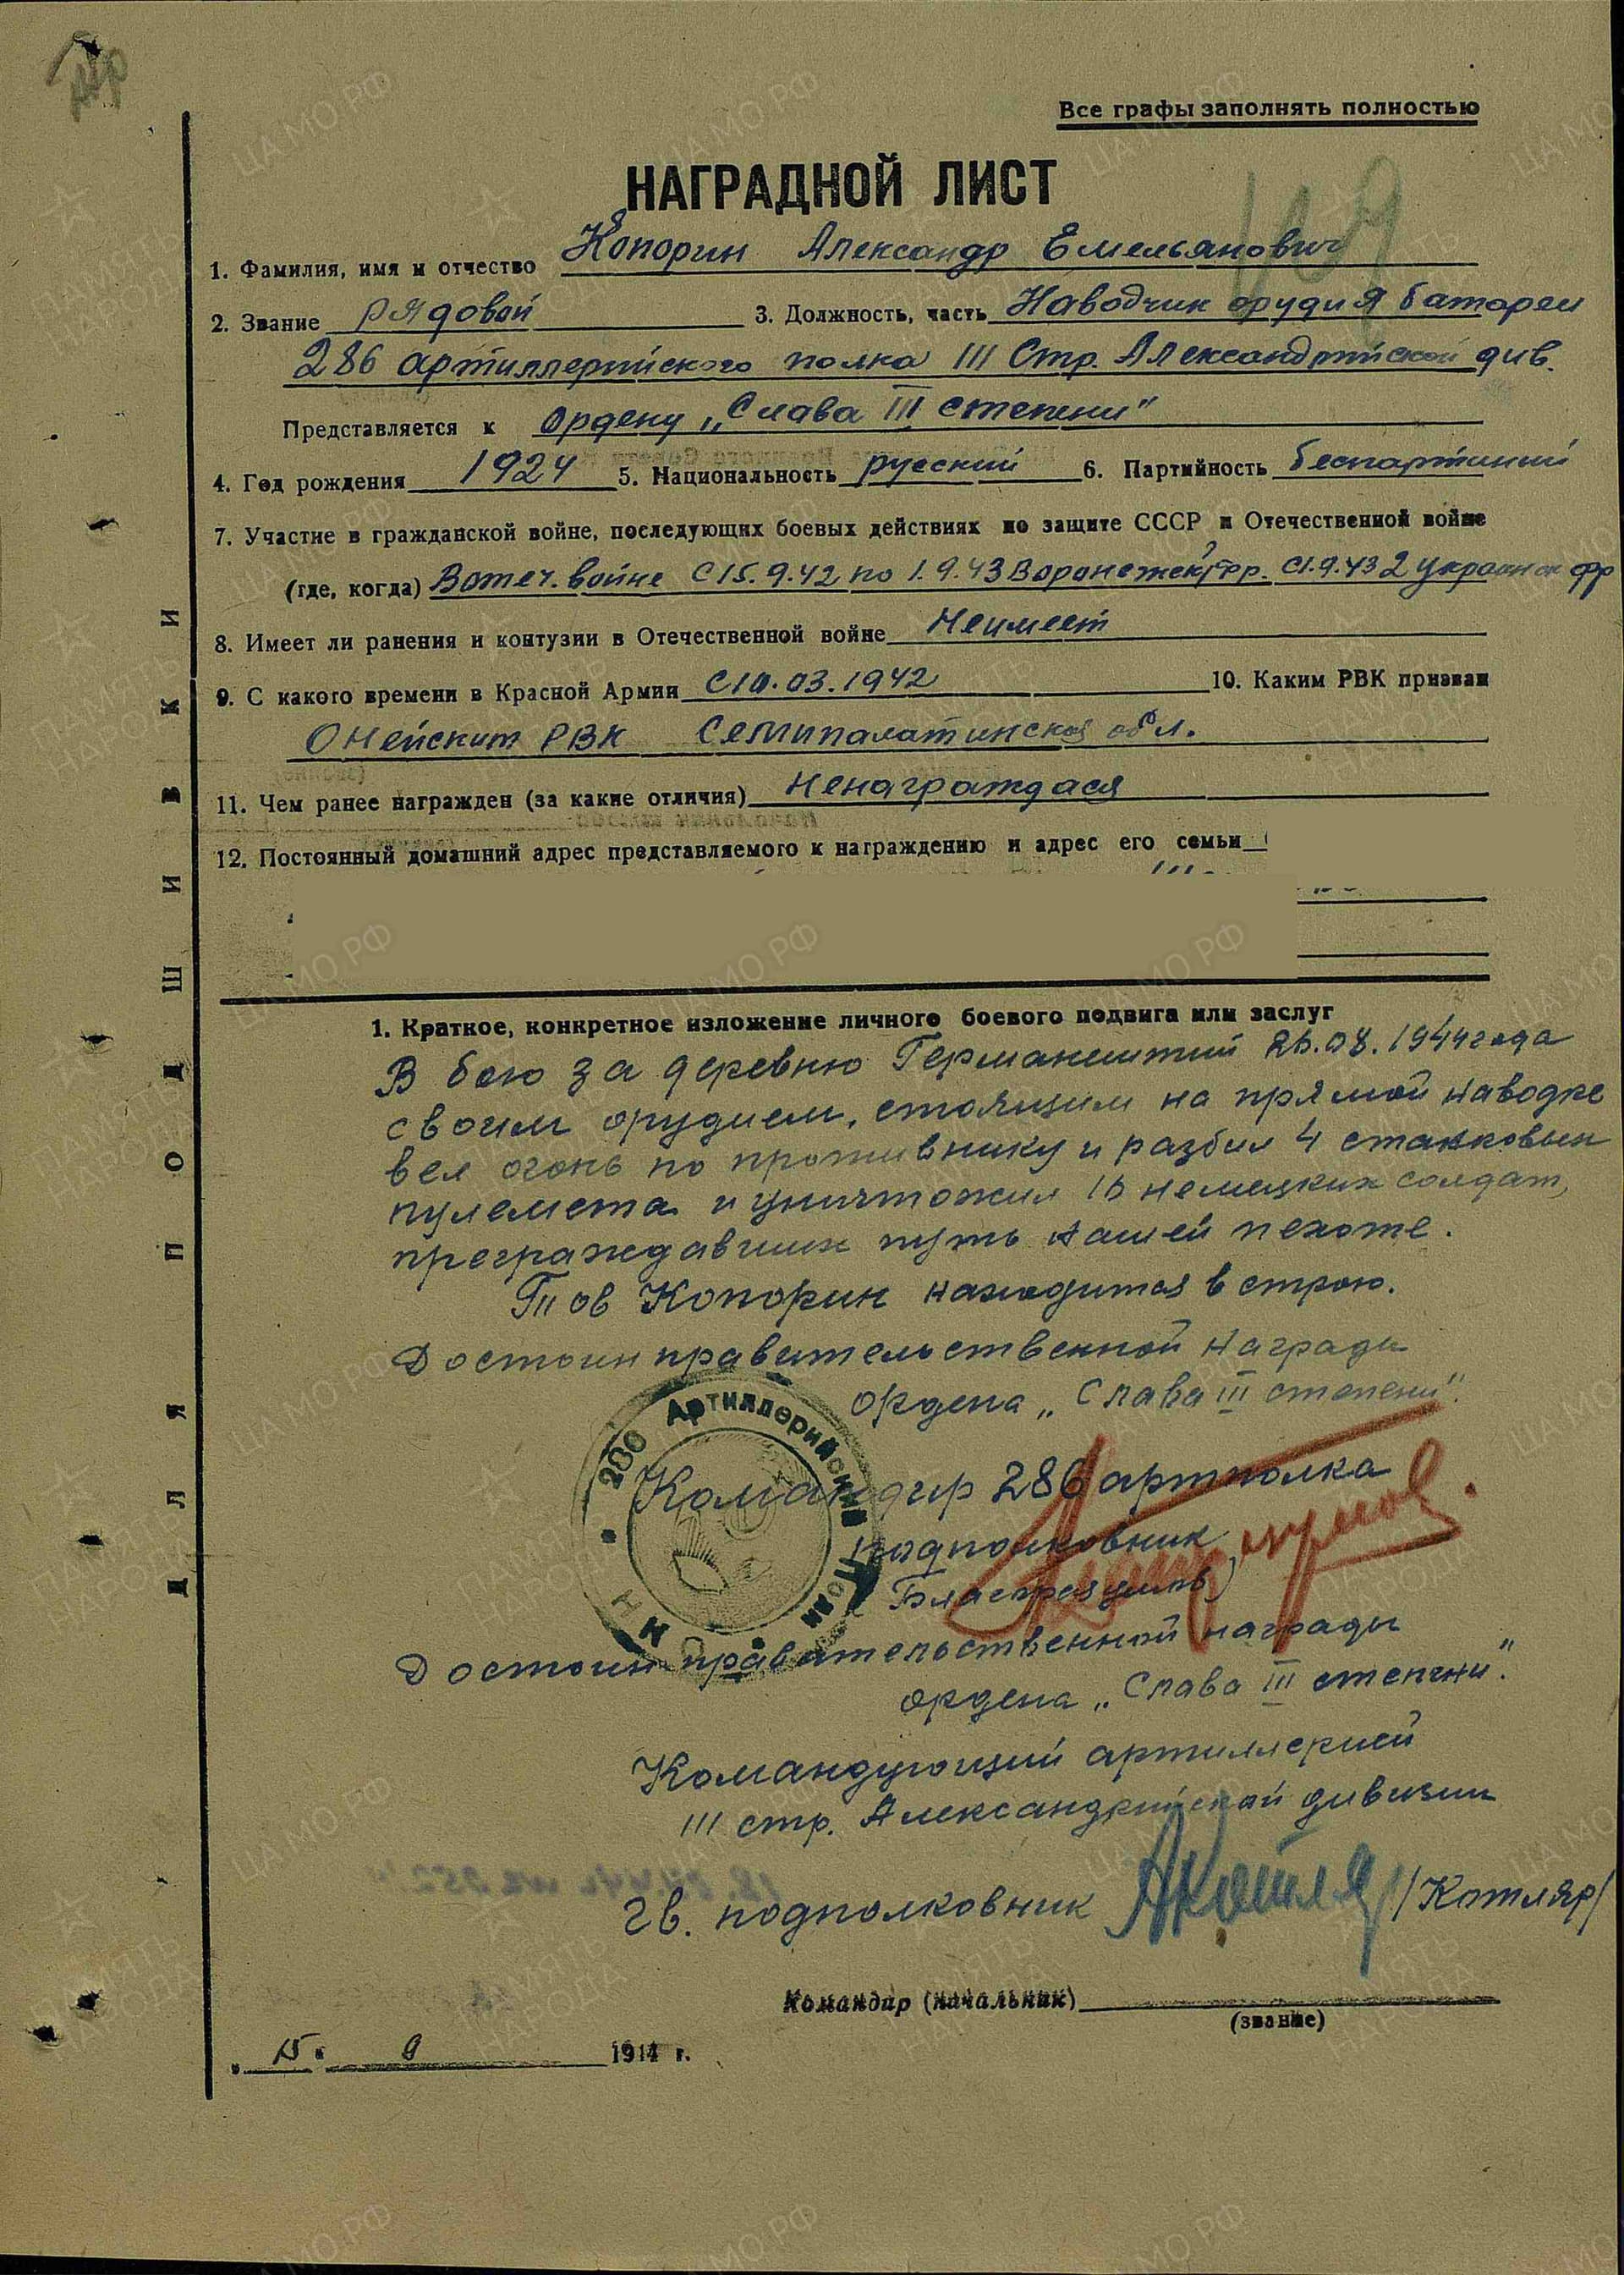 Все графы заполнять полностью
НАГРАДНОЙ ЛИСТ
1. Фамилия, имя и отчество Копорин Александр Емельянович
2. Звание рядовой 3. Должность, часть Наводчик орудия батареи
286 артиллерийского полка 111 Стр. Александрийской див.
Представляется к ордену „Слава III степени"
4. Год рождения 1924 5. Национальность русский 6. Партийность беспартийный
7. Участие в гражданской войне, последующих боевых действиях по защите СССР и Отечественной войне
(где, когда) В отеч. войне с 15.9.42 по 1.9.43 Воронежск фр. с 1.9.43 2 украинск фр
8. Имеет ли ранения и контузии в Отечественной войне Неимеет
9. С какого времени в Красной Армии С 10.03.1942 10. Каким РВК призван
РВК Семипалатинской обл.
11. Чем ранее награжден (за какие отличия) Ненаграждася
12. Постоянный домашний адрес представляемого к награждению и адрес его семьи
1. Краткое, конкретное изложение личного боевого подвига или заслуг
В бою за деревню 1944 года
своим орудием, стоящим на прямой наводке
вел огонь по противнику и разбил 4 станковых
пулемета и уничтожил немецких солдат,
преграждавших путь нашей пехоте.
Тов Копорин находится в строю.
Достоин правительственной награды
ордена „Слава III степени".
Командир 286 артполка
подполковник
286 Артиллерийский Полк
Н К О
Достоин правительственной награды
ордена „Слава III степени".
Командующий артиллерией
111 стр. Александрийской дивизии
гв. подполковник АКотляр /Котляр/
Командир (начальник)
(звание)
„ 15 " 9 1944 г.
ДЛЯ ПОДШИВКИ
ЦА МО РФ
ПАМЯТЬ НАРОДА